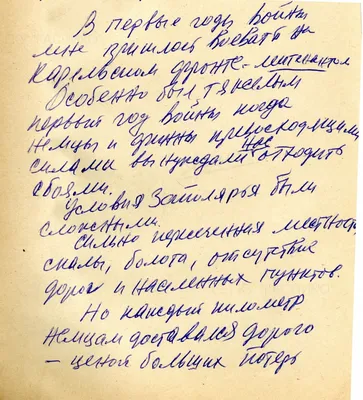 В первые годы войны
мне пришлось воевать на
Карельском фронте - лейтенантом
Особенно был тяжелым
первый год войны когда
немцы и финны превосходящими
силами вынуждали нас отходить
с боями.
Условия Заполярья были
сложными.
Сильно пересеченная местность
скалы, болота, отсутствие
дорог и населенных пунктов.
Но каждый километр
немцам доставался дорого
– ценой больших потерь